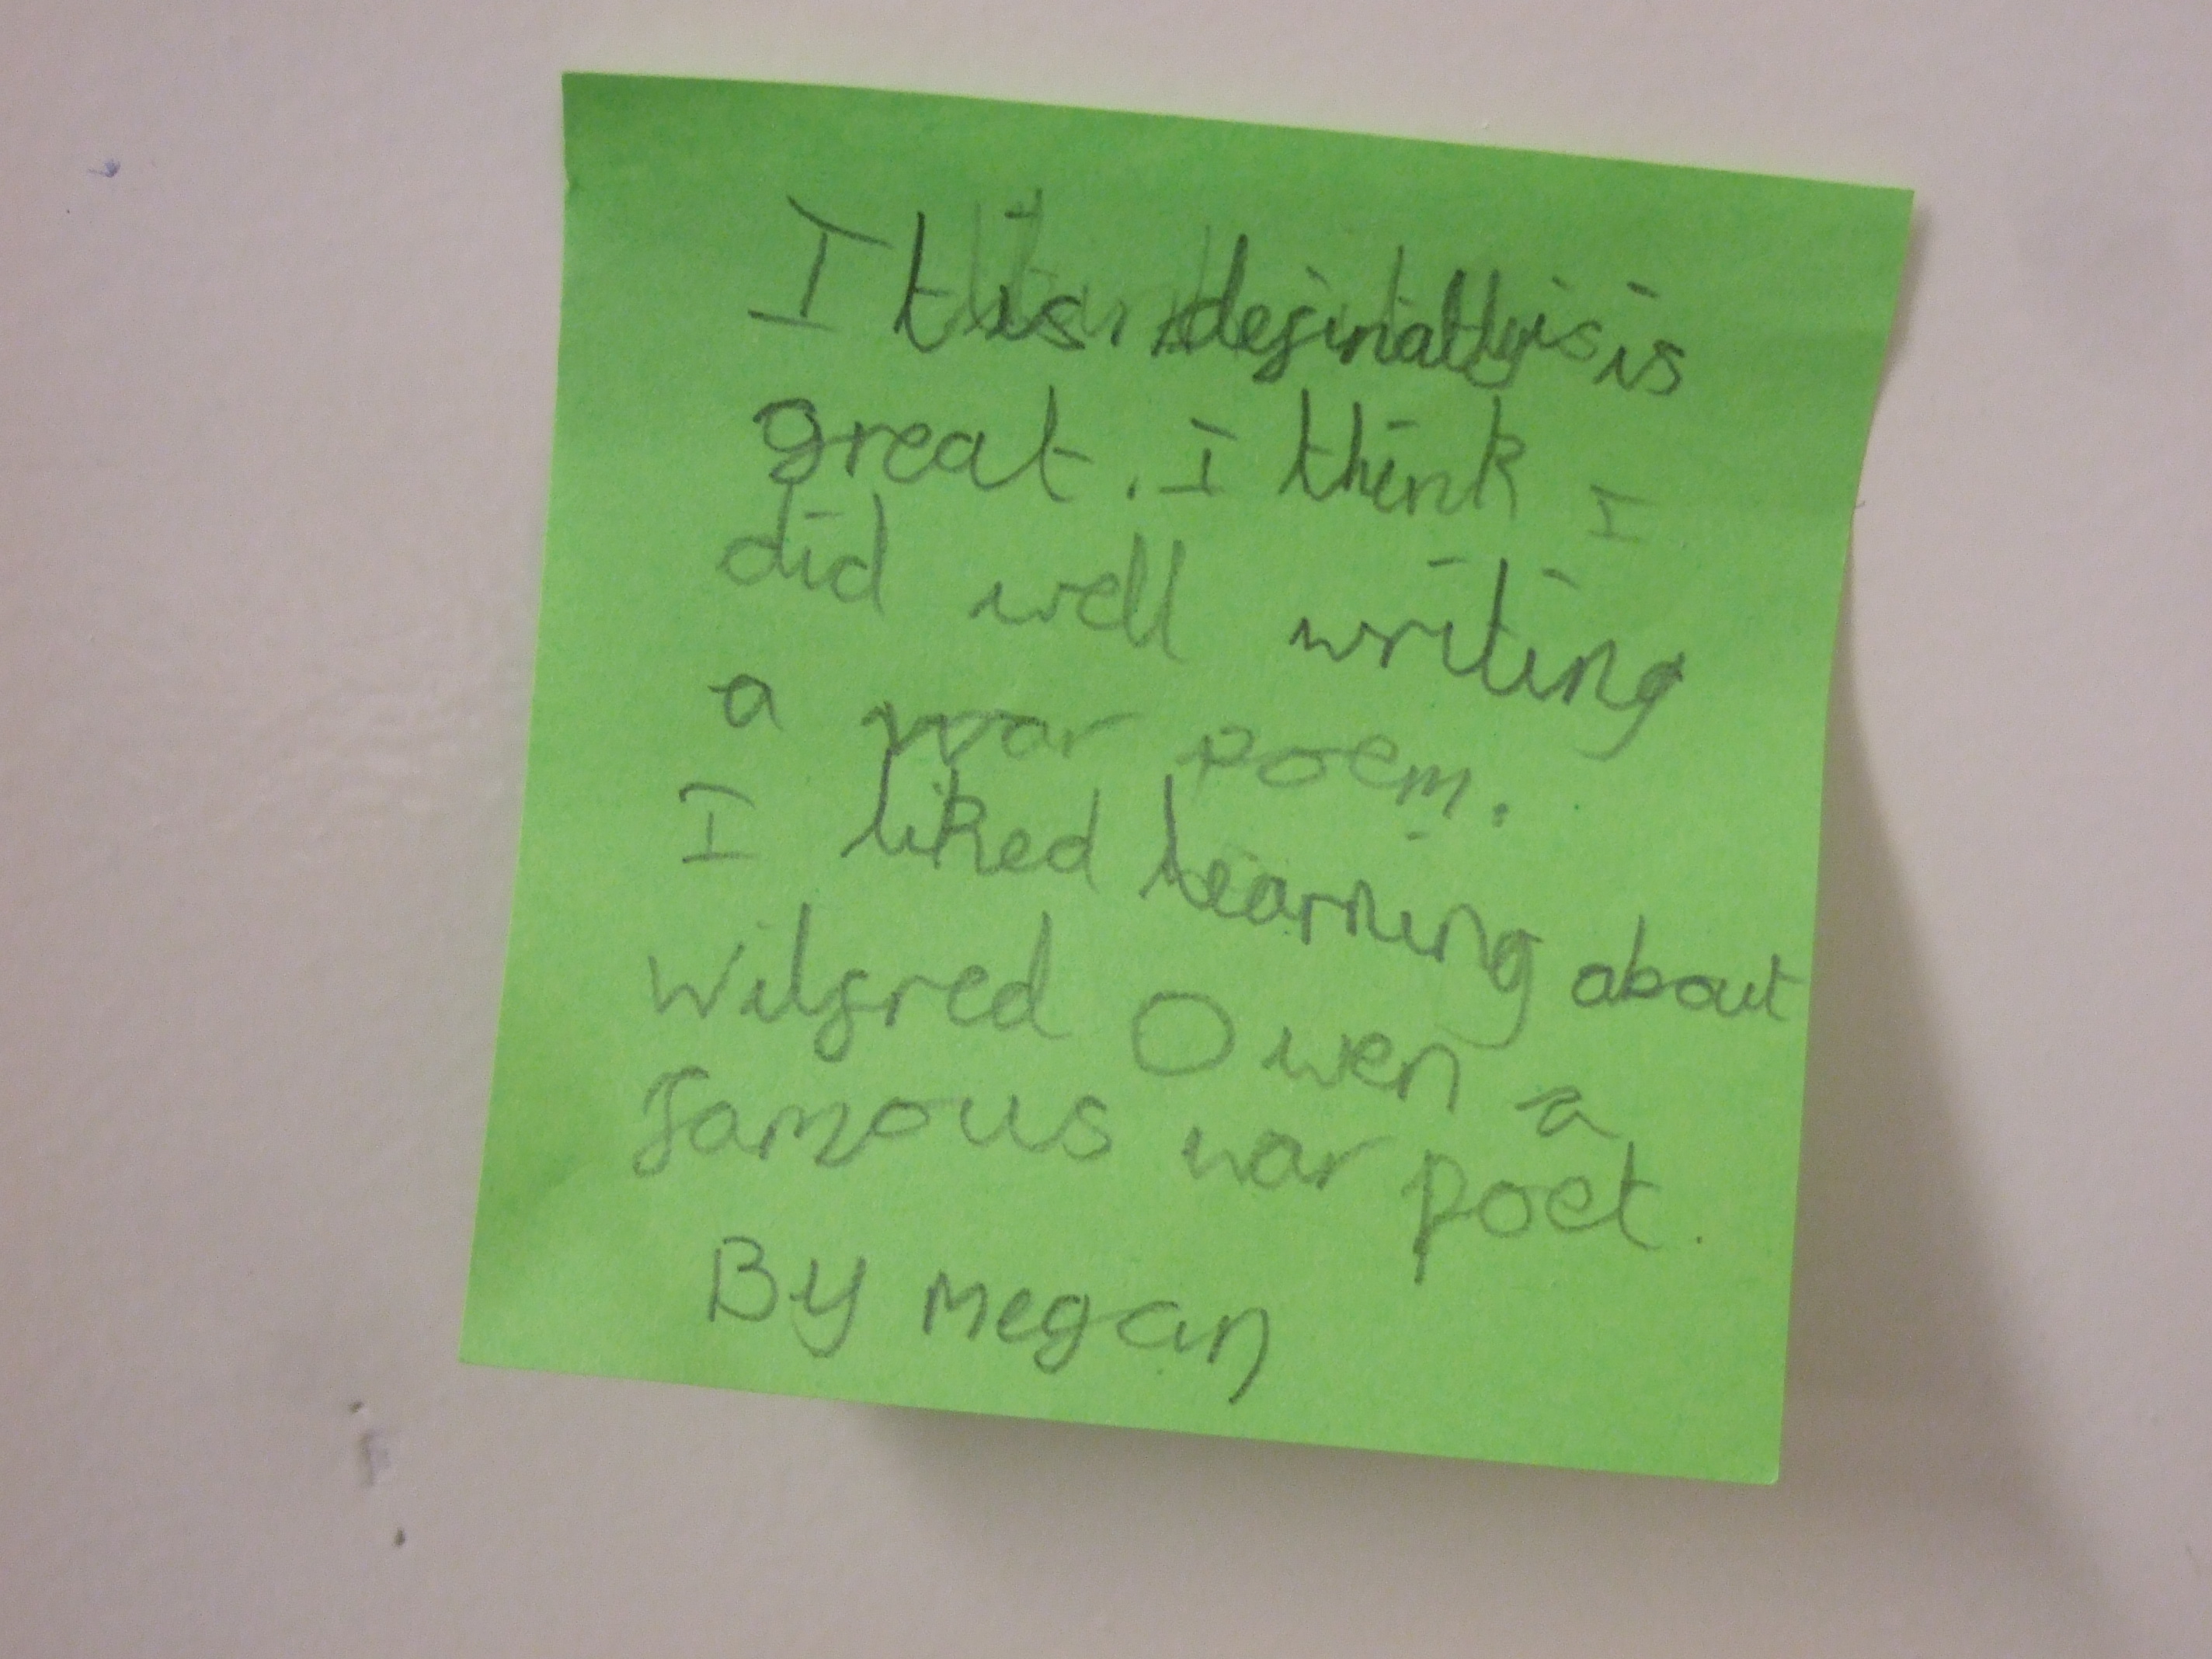 It is definatly is
great. I think I
did well writing
a war poem.
I liked learning about
Wilfred Owen a
famous war poet.
By megan